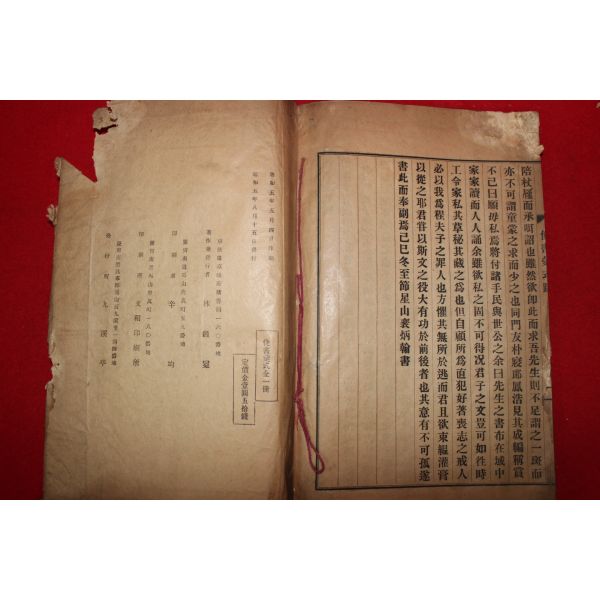 陪杖屨而承明詔也雖然欲卽此而求吾先生則不足謂之一斑而
亦不可謂童蒙之求而少之也同門友朴寢郞鳳浩見其成編稱賞
不已曰願毋私焉將付諸手民與世公之余曰先生之書布在域中
家家讀而人人誦余雖欲私之固不可得况君子之文豈可如往時
工令家私其草秘其藏之爲也但自顧所爲直犯好著喪志之戒人
必以我爲程夫子之罪人也方懼其無所於逃而君且欲束縕灌膏
以從之耶君嘗以斯文之役大有功於前後者也其意有不可孤遂
書此而奉副焉己巳冬至節星山裵炳翰書
昭和五年五月四日印刷
昭和五年八月十五日發行
著作兼發行者
印刷者 辛 均
印刷所 文相印刷所
發行所 九溪亭
全一冊
定價金壹圓五拾錢